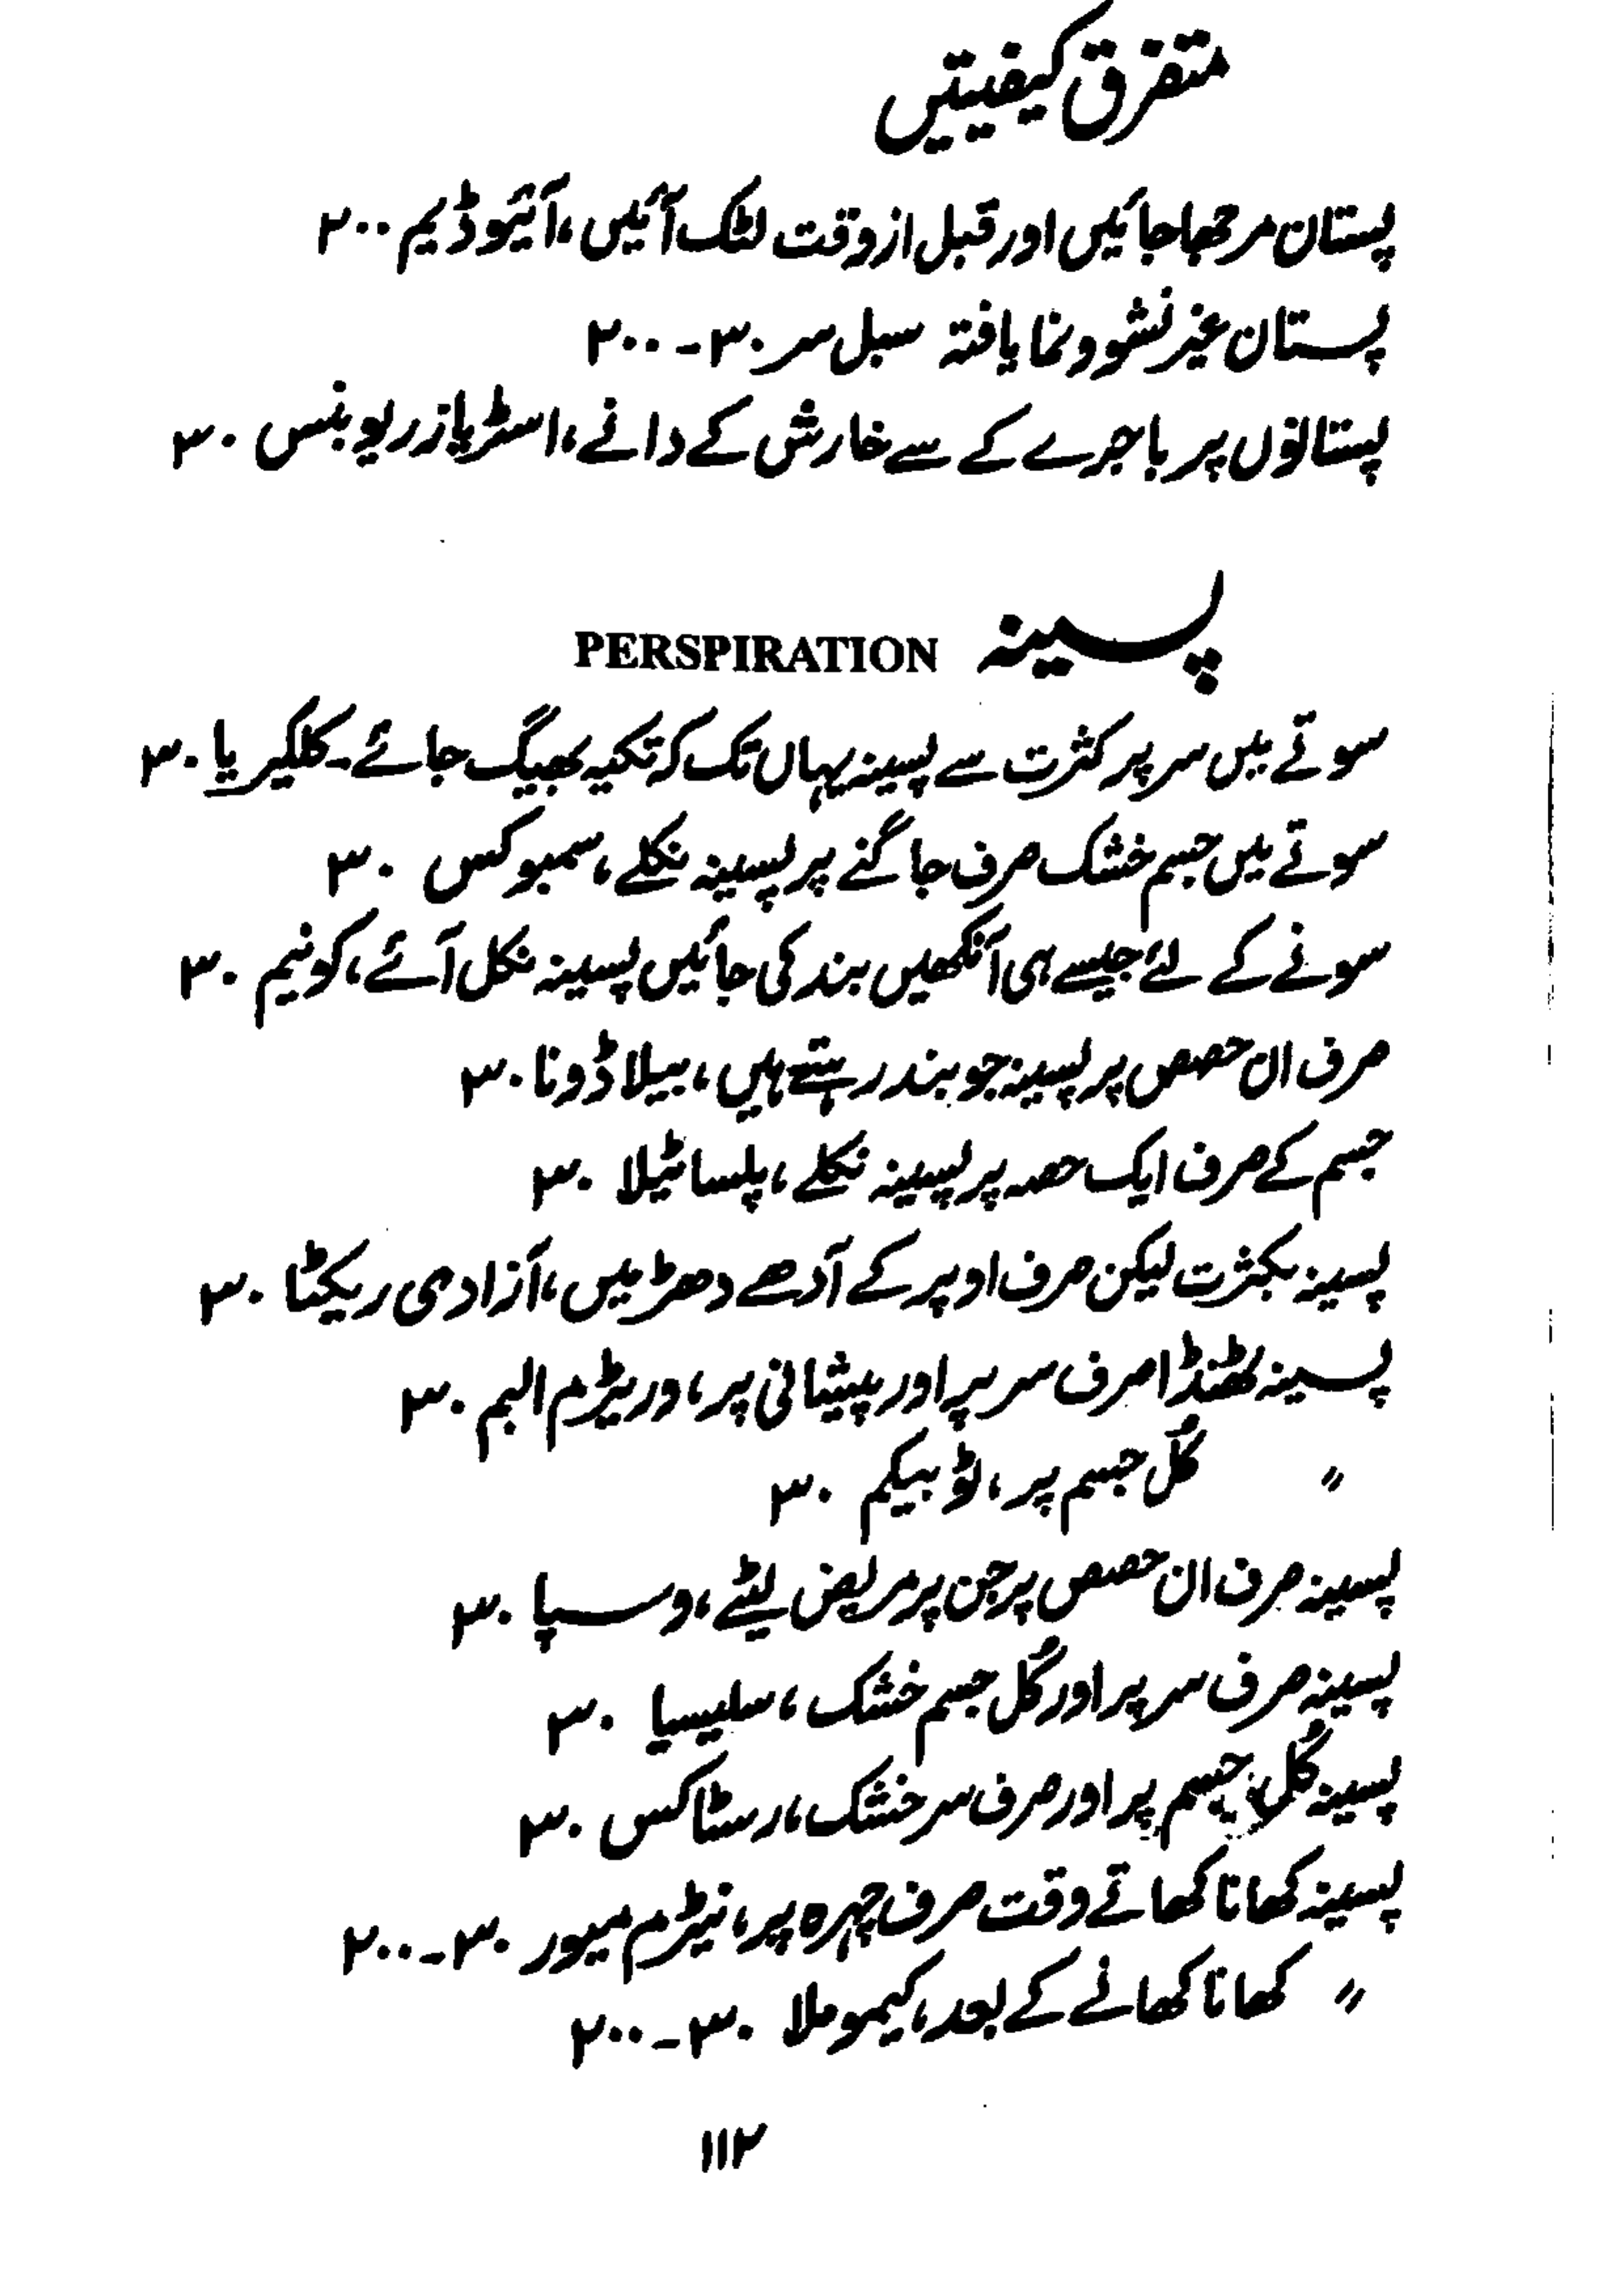 متفرق کیفیتیں
پستان مرجھا جائیں اور قبل از وقت لٹک آئیں، آئیوڈیم ۲۰۰
پستان غیر نشوونما یافتہ سبل سر ۳۰۔۲۰۰
پستانوں پر باجرے کے سے خارش کے دانے، اسٹریاز ریوبنس ۳۰
پسینہ PERSPIRATION
سوتے میں سر پر کثرت سے پسینہ یہاں تک کہ تکیہ بھیگ جائے۔ کلکیریا ۳۰
سوتے میں جسم خشک صرف جاگنے پر پسینہ نکلے، سمبوکس ۳۰
سونے کے لئے جیسے ہی آنکھیں بند کی جائیں پسینہ نکل آئے، کونیم ۳۰
صرف ان حصص پر پسینہ جو بند رہتے ہیں، بیلا ڈونا ۳۰
جسم کے صرف ایک حصہ پر پسینہ نکلے، پلساٹیلا ۳۰
پسینہ بکثرت لیکن صرف اوپر کے آدھے دھڑ میں، آزادی ریکٹا ۳۰
پسینہ ٹھنڈا صرف سر پر اور پیشانی پر، وریٹرم البم ۳۰
〃 کُل جسم پر، ٹوبیکم ۳۰
پسینہ صرف ان حصص پر جن پر مریض لیٹے، وسپا ۳۰
پسینہ صرف سر پر اور کُل جسم خشک، سلیسیا ۳۰
پسینہ کُل جسم پر اور صرف سر خشک، رسٹاکس ۳۰
پسینہ کھانا کھاتے وقت صرف چہرہ پر، نیٹرم میور ۳۰۔۲۰۰
〃 کھانا کھانے کے بعد، کیموملا ۳۰۔۲۰۰
۱۱۲